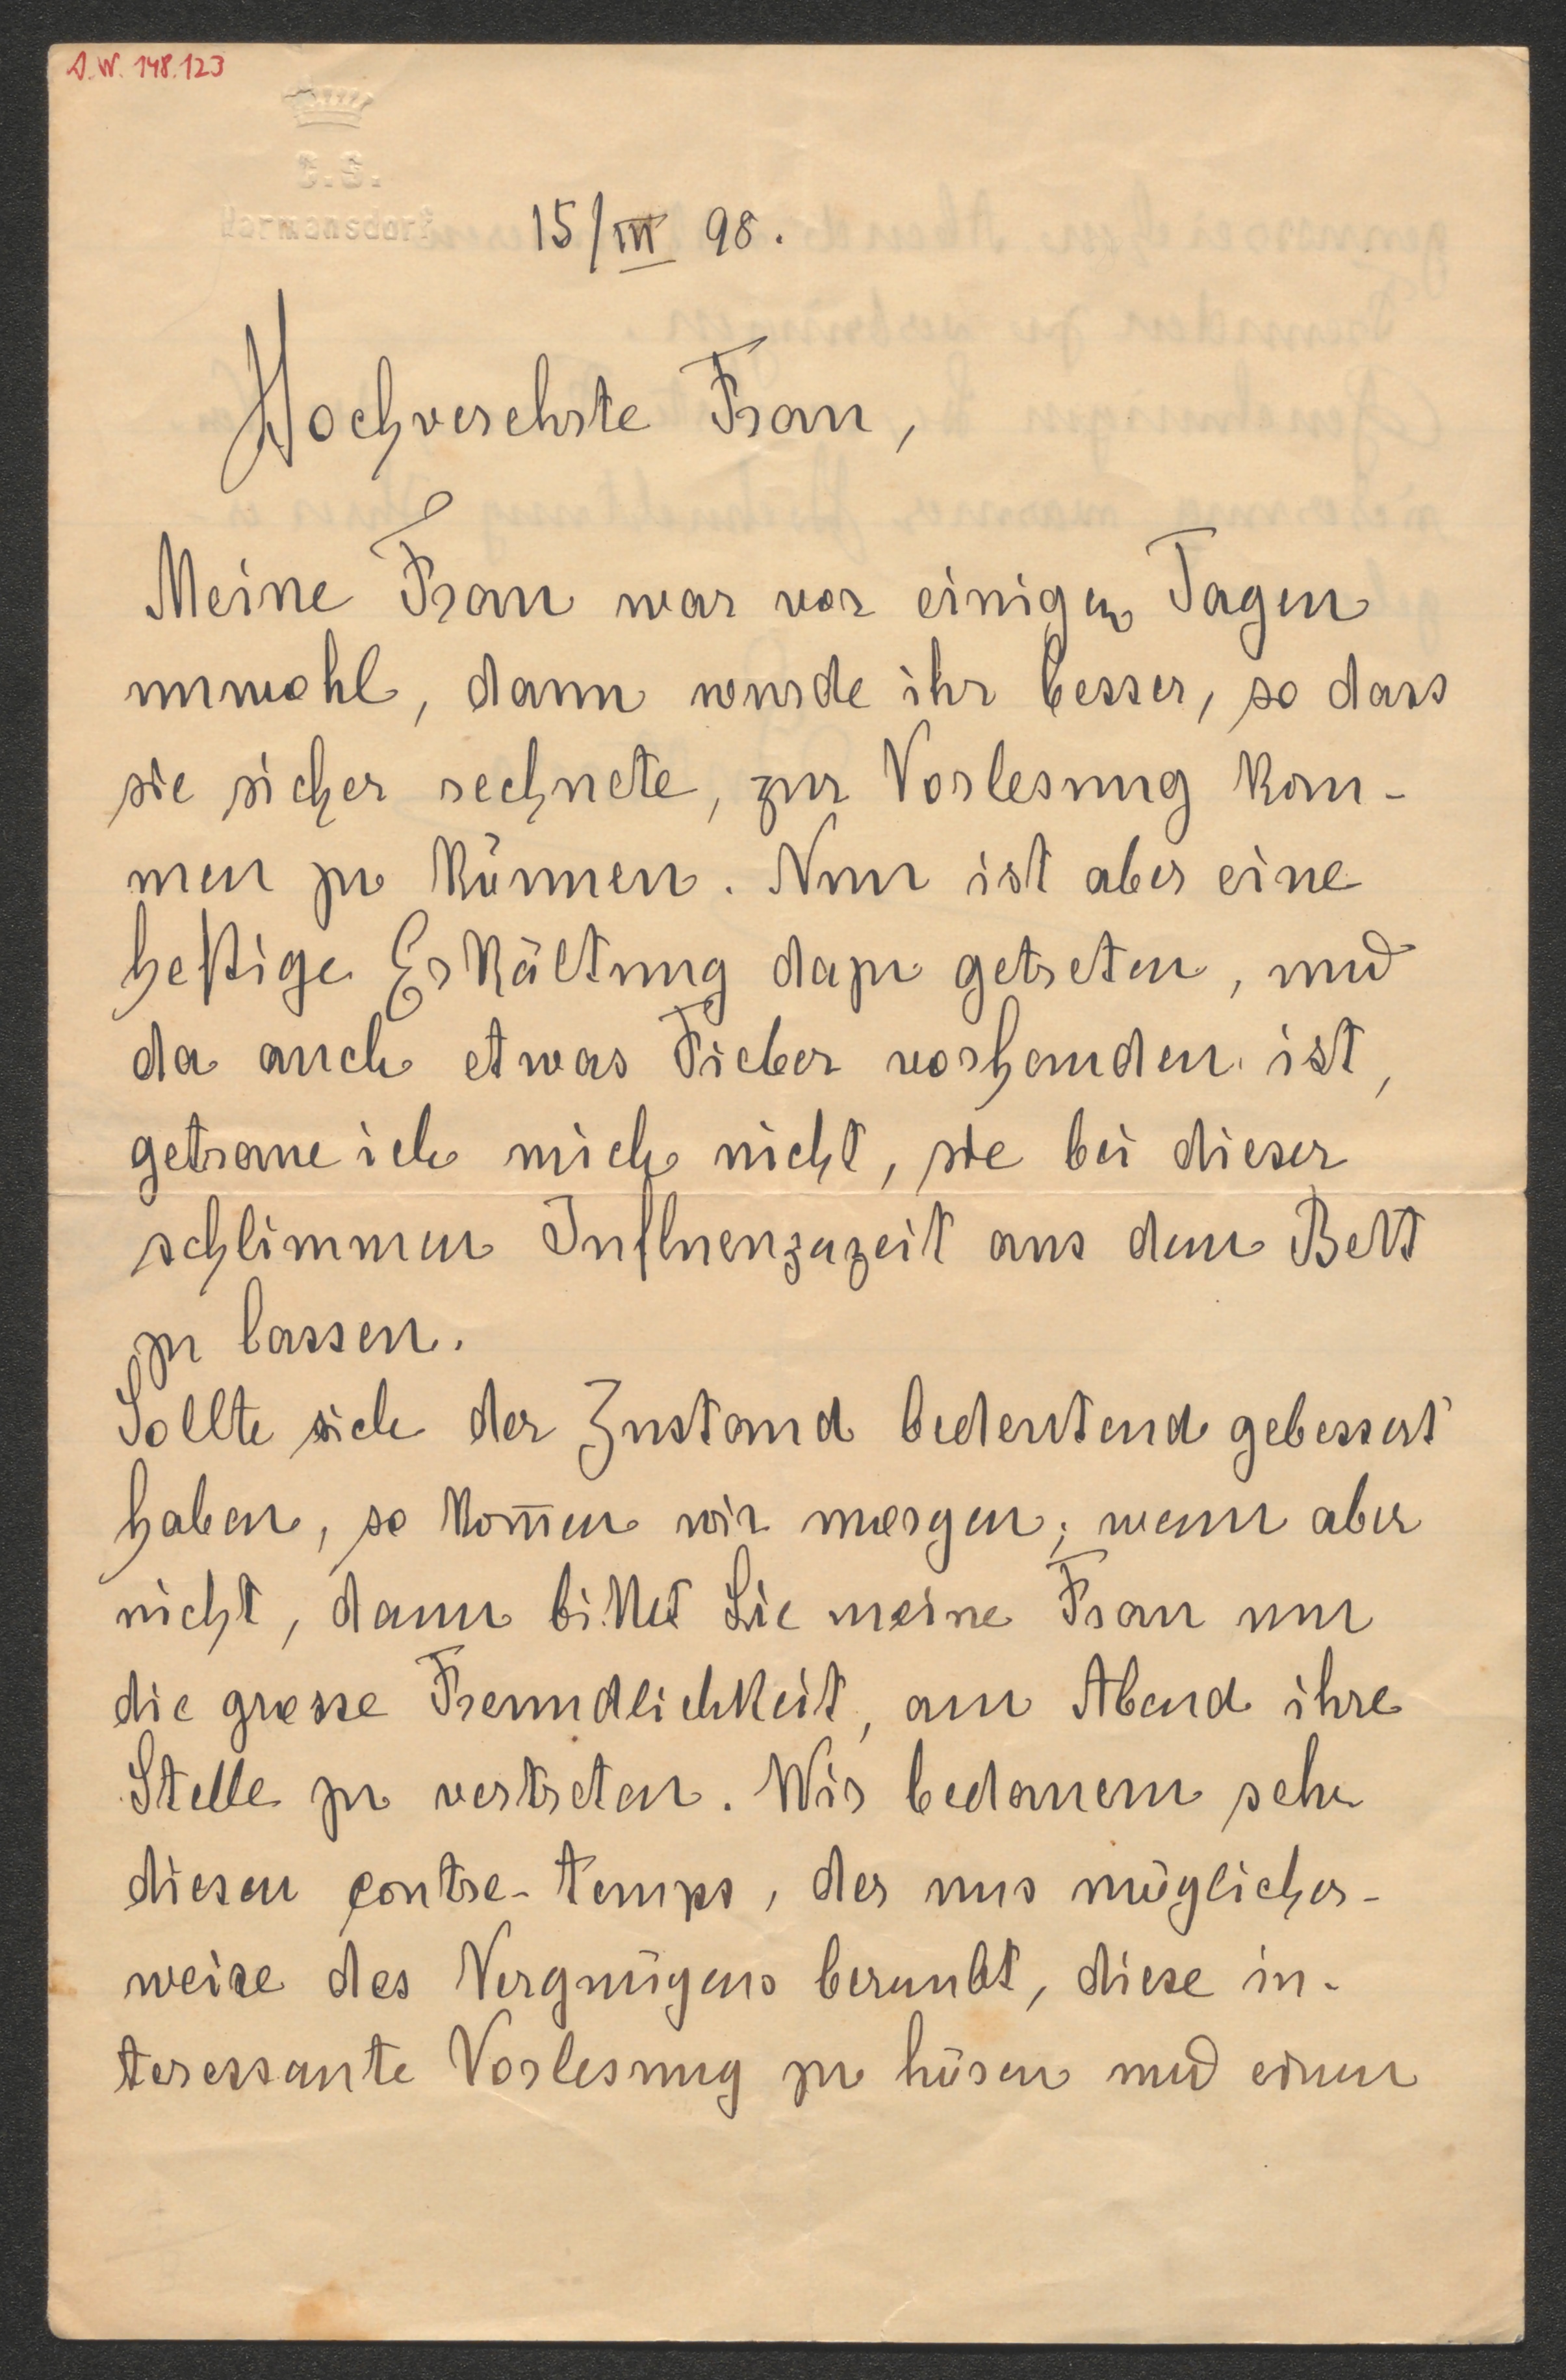 A.W. 148.123
C.S.
Harmansdorf
15/III 98.
Hochverehrte Frau,
Meine Frau war vor einigen Tagen
unwohl, dann wurde ihr besser, so dass
sie sicher rechnete, zur Vorlesung kom-
men zu können. Nun ist aber eine
heftige Erkältung dazu getreten, und
da auch etwas Fieber vorhanden ist,
getraue ich mich nicht, sie bei dieser
schlimmen Influenzazeit aus dem Bett
zu lassen.
Sollte sich der Zustand bedeutend gebessert
haben, so kom̄en wir morgen; wenn aber
nicht, dann bittet Sie meine Frau um
die grosse Freundlichkeit, am Abend ihre
Stelle zu vertreten. Wir bedauern sehr
diesen contre-temps, der uns möglicher-
weise des Vergnügens beraubt, diese in-
teressante Vorlesung zu hören und einen